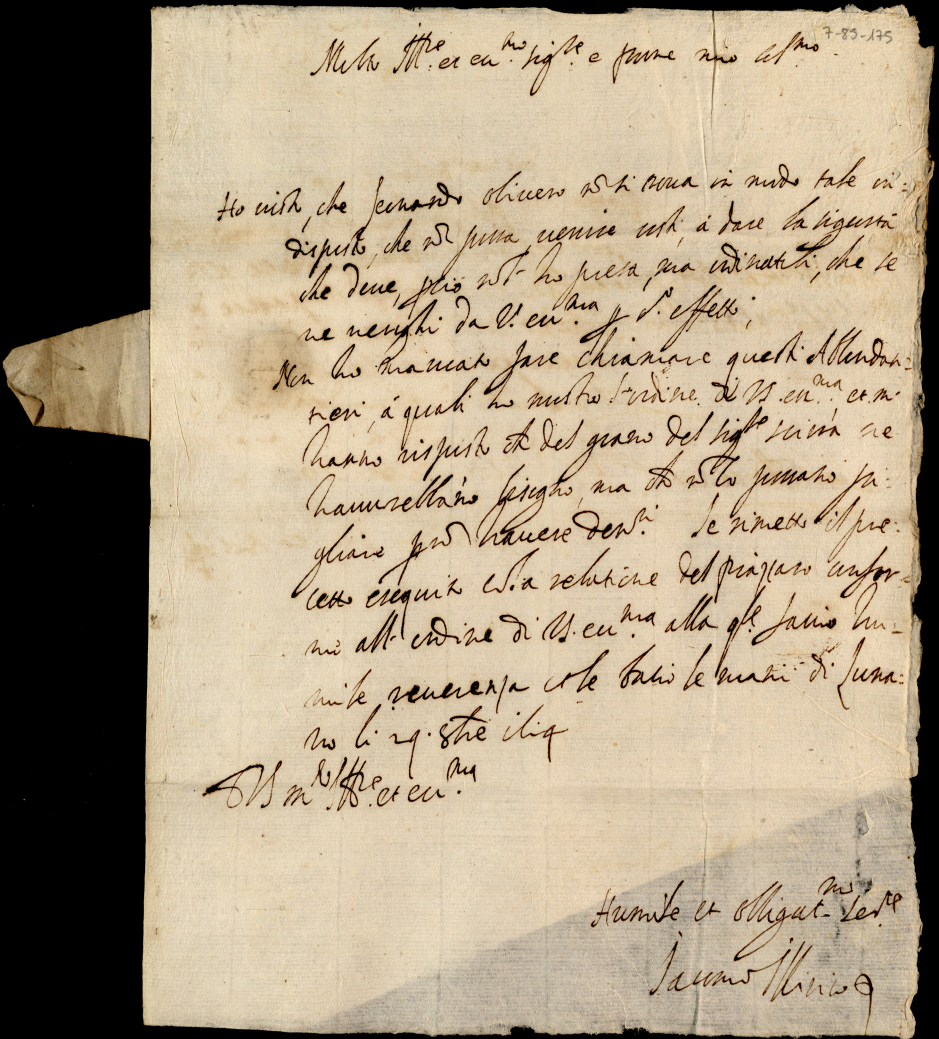 7-89-175
Molto Ill.re et ecc.mo sig.re e prone mio oss.mo
Ho visto, che Leonardo olivero nõ si trova in modo tale in=
disposto, che nõ possa venire costì, á dare la sigurtá
che deve, nõ l' ho presa, ma ordinatoli, che se
ne venghi da V.S. ecc.ma p d.o effetto;
Non ho mancato fare chiamare questi Abbondan=
tieri, á quali ho mostro l'ordine di V.S. ecc.ma et mi
hanno risposto che del grano del sig.re ne
haverebbano bisogno, ma che nõ lo possano pi=
gliare p nõ havere den.ri Se rimette il pre=
cetto eseguito con la relatione del piazzaro confor=
me all' ordine di V.S. ecc.ma alla q.le faccio hu=
mile reverenza et le bacio le mani di
no li 29. 8bre
D V.S. m.to Ill.re et ecc.ma
Humile et obligat.mo ser.re